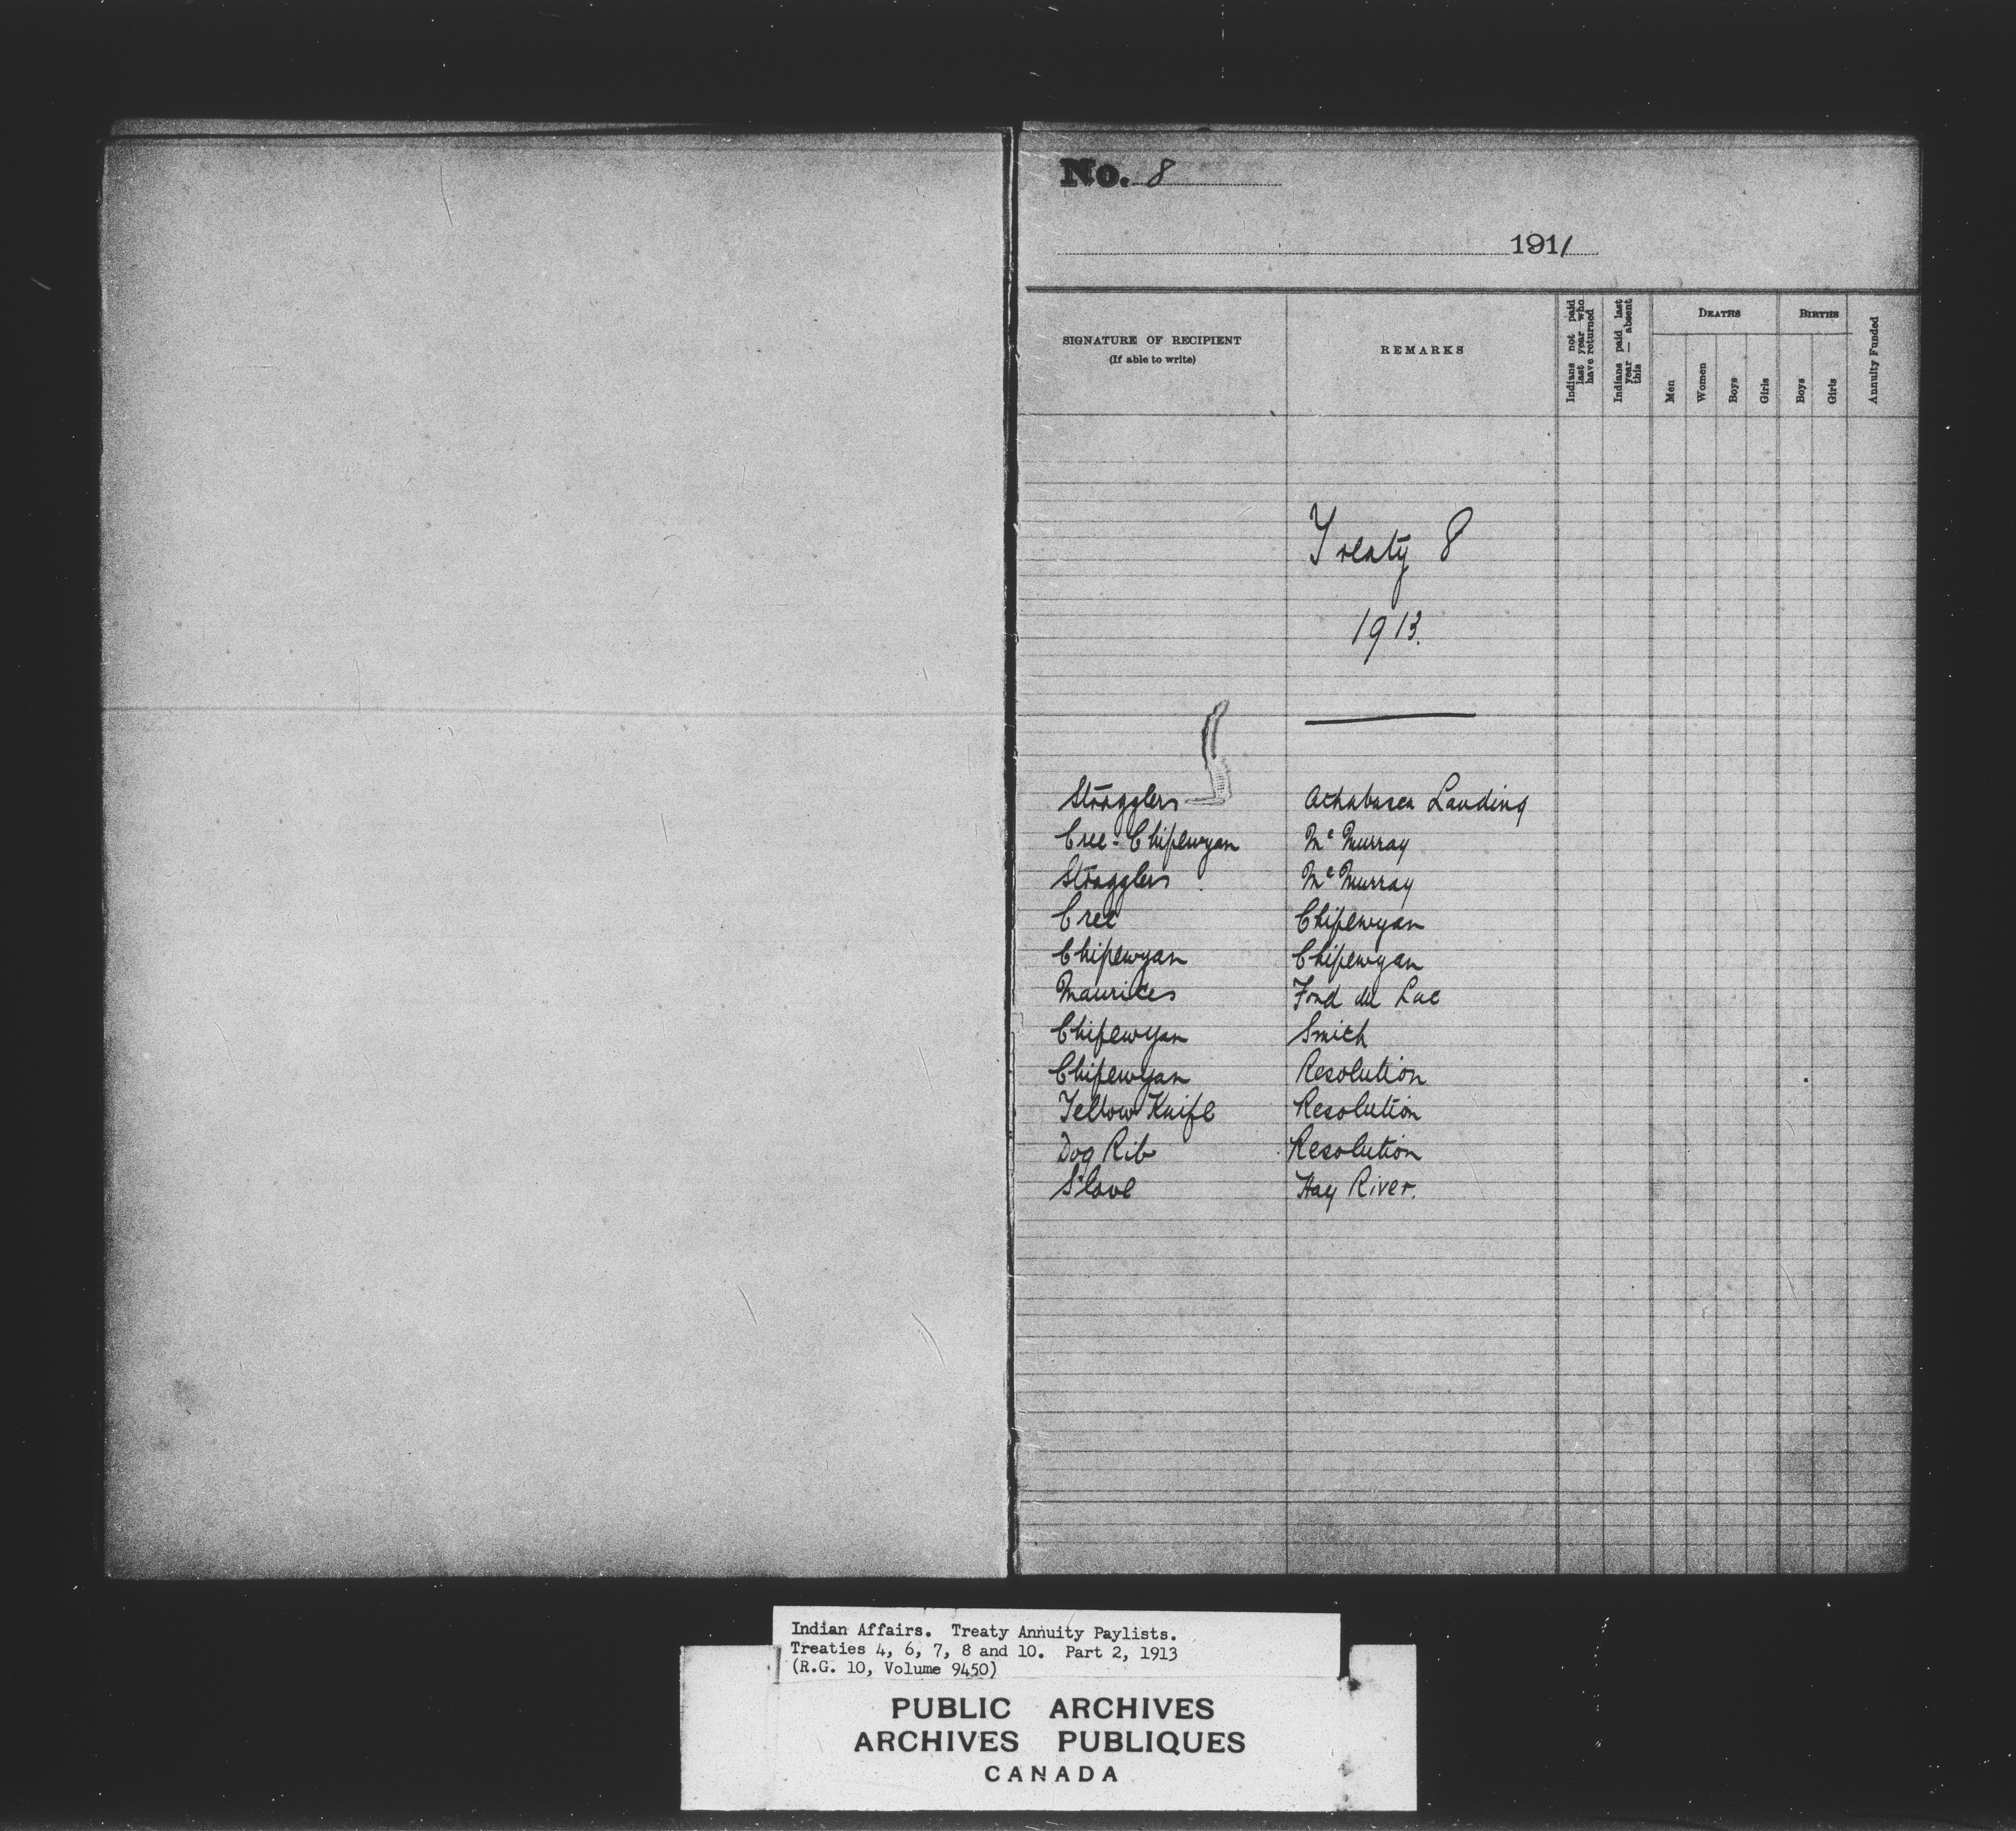 No. 8
1911
SIGNATURE OF RECIPIENT
(If able to write)
REMARKS
Indians not paid last year who have returned
Indians paid last year — absent this
DEATHS
Men
Women
Boys
Girls
BIRTHS
Boys
Girls
Annuity Funded
Treaty 8
1913.
Stragglers Athabasca Landing
Cree-Chipewyan Mc Murray
Stragglers Mc Murray
Cree Chipewyan
Chipewyan Chipewyan
Maurices Fond du Lac
Chipewyan Smith
Chipewyan Resolution
Yellow Knife Resolution
Dog Rib Resolution
Slave Hay River.
Indian Affairs. Treaty Annuity Paylists.
Treaties 4, 6, 7, 8 and 10. Part 2, 1913
(R.G. 10, Volume 9450)
PUBLIC ARCHIVES
ARCHIVES PUBLIQUES
CANADA